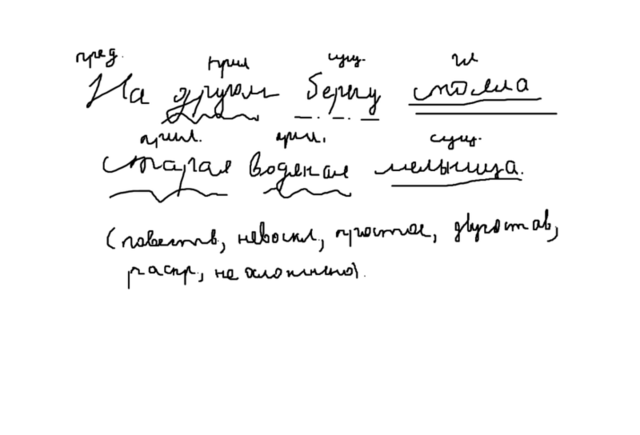 пред. прил сущ. гл
На другом берегу стояла
прил. прил. сущ.
старая водяная мельница.
(повеств, невоскл, простое, двусостав,
распр, не осложнено).